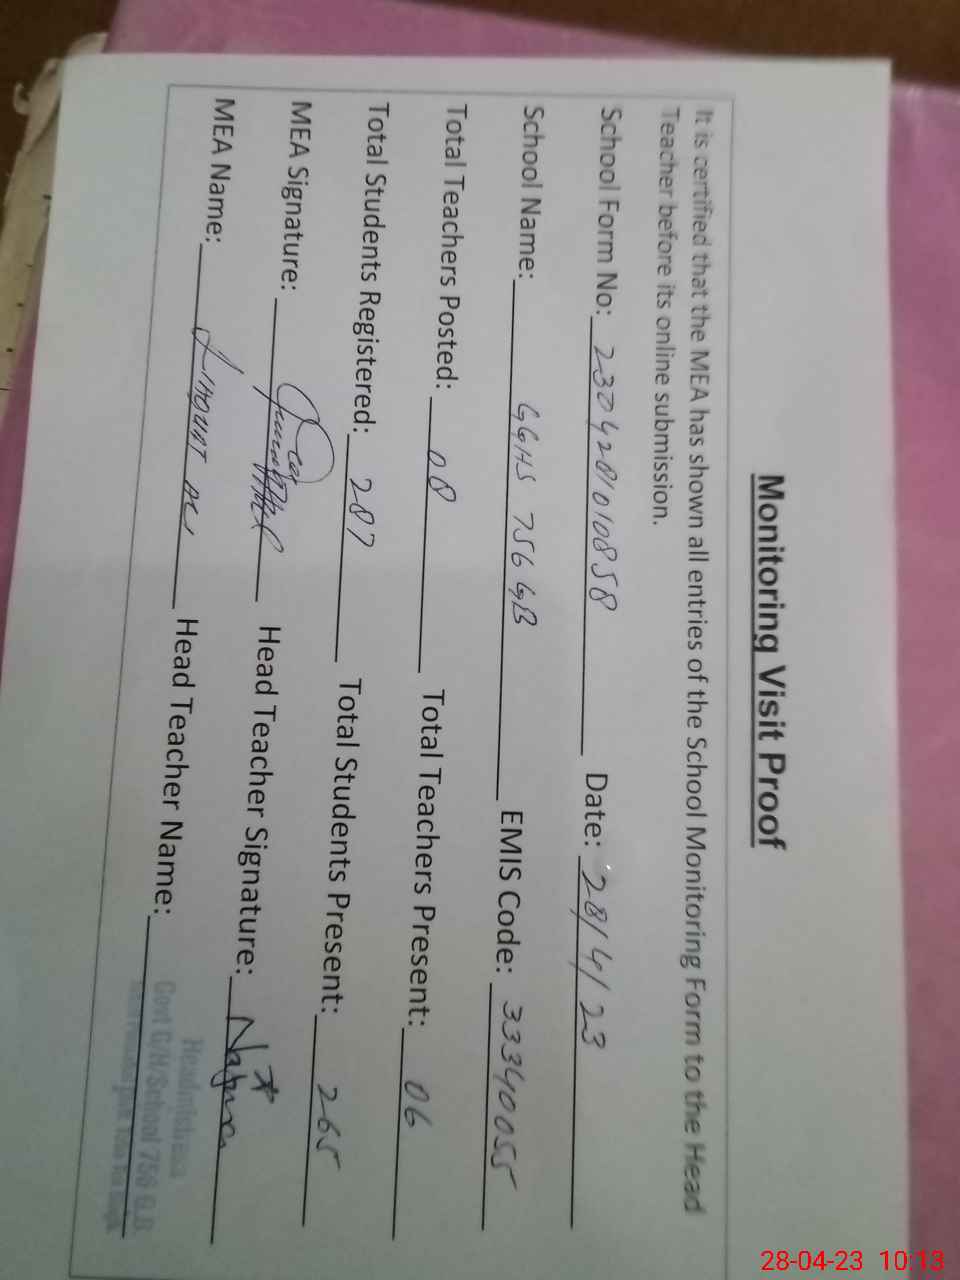 Monitoring Visit Proof
It is certified that the MEA has shown all entries of the School Monitoring Form to the Head
Teacher before its online submission.
School Form No: 2304281010858 Date: 28/4/23
School Name: GGHS 756 GB EMIS Code: 33340055
Total Teachers Posted: 08 Total Teachers Present: 06
Total Students Registered: 287 Total Students Present: 265
MEA Signature: Head Teacher Signature:
MEA Name: Head Teacher Name:
Headmistress
Govt G/H/School 756 G.B
28-04-23 10:13